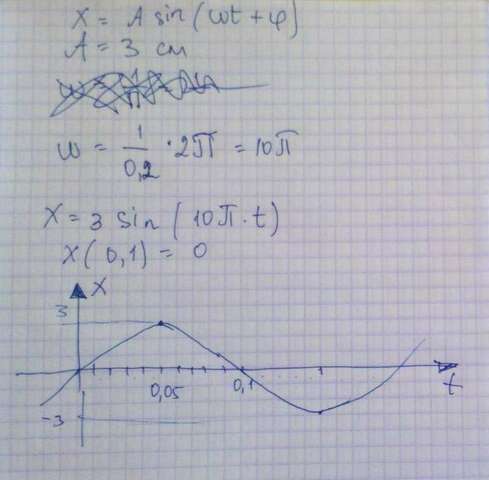 X = A sin(ωt + φ)
A = 3 см
ω = 1/0,2 · 2π = 10π
X = 3 sin(10π·t)
X(0,1) = 0
X
3
0,05
0,1
t
-3